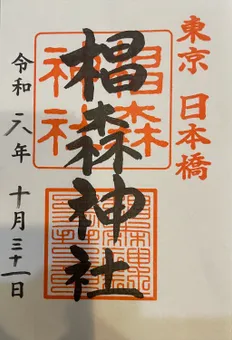 東京 日本橋
椙森神社
椙森
神社
令和六年 十月三十一日